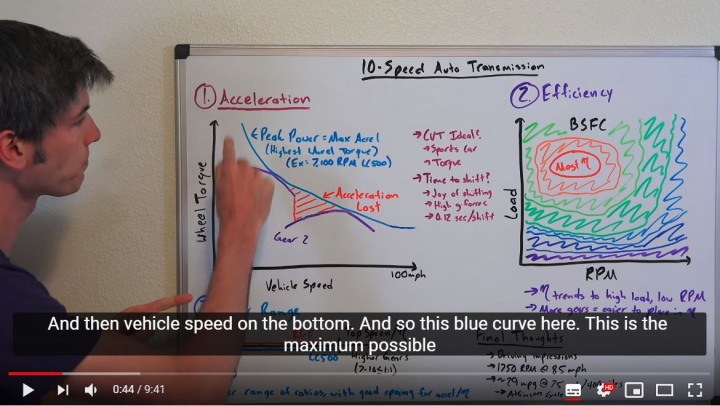 10-Speed Auto Transmission
① Acceleration
← Peak Power = Max Accel
(Highest Wheel Torque)
(Ex: 7,100 RPM LC500)
← Acceleration
Lost
Gear 2
Wheel Torque
Vehicle Speed
100mph
→ CVT Ideal?
→ Sports Car
→ Torque
→ Time to shift?
→ Joy of shifting
→ High g forces
→ 0.12 sec/shift
② Efficiency
BSFC
Most η
Load
RPM
→ η trends to high load, low RPM
→ More gears = easier to place in η
Range
LC500
Higher Gears
Final Thoughts
→ Driving Impressions
→ 1750 RPM @ 85mph
range of ratios with good spacing for accel/η
And then vehicle speed on the bottom. And so this blue curve here. This is the
maximum possible
0:44 / 9:41
HD